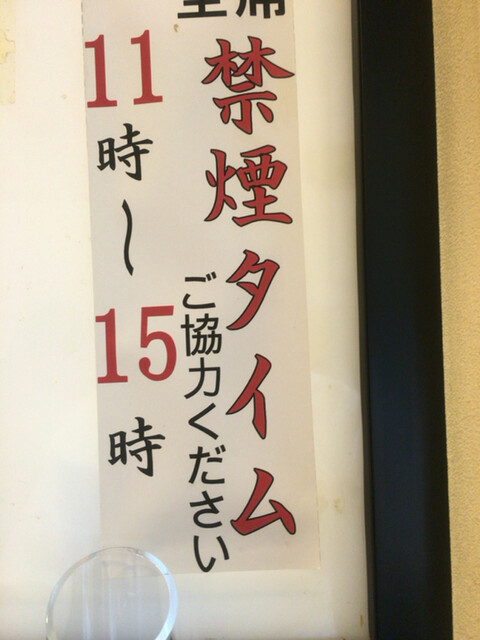 全席
禁煙タイム
ご協力ください
11時〜15時